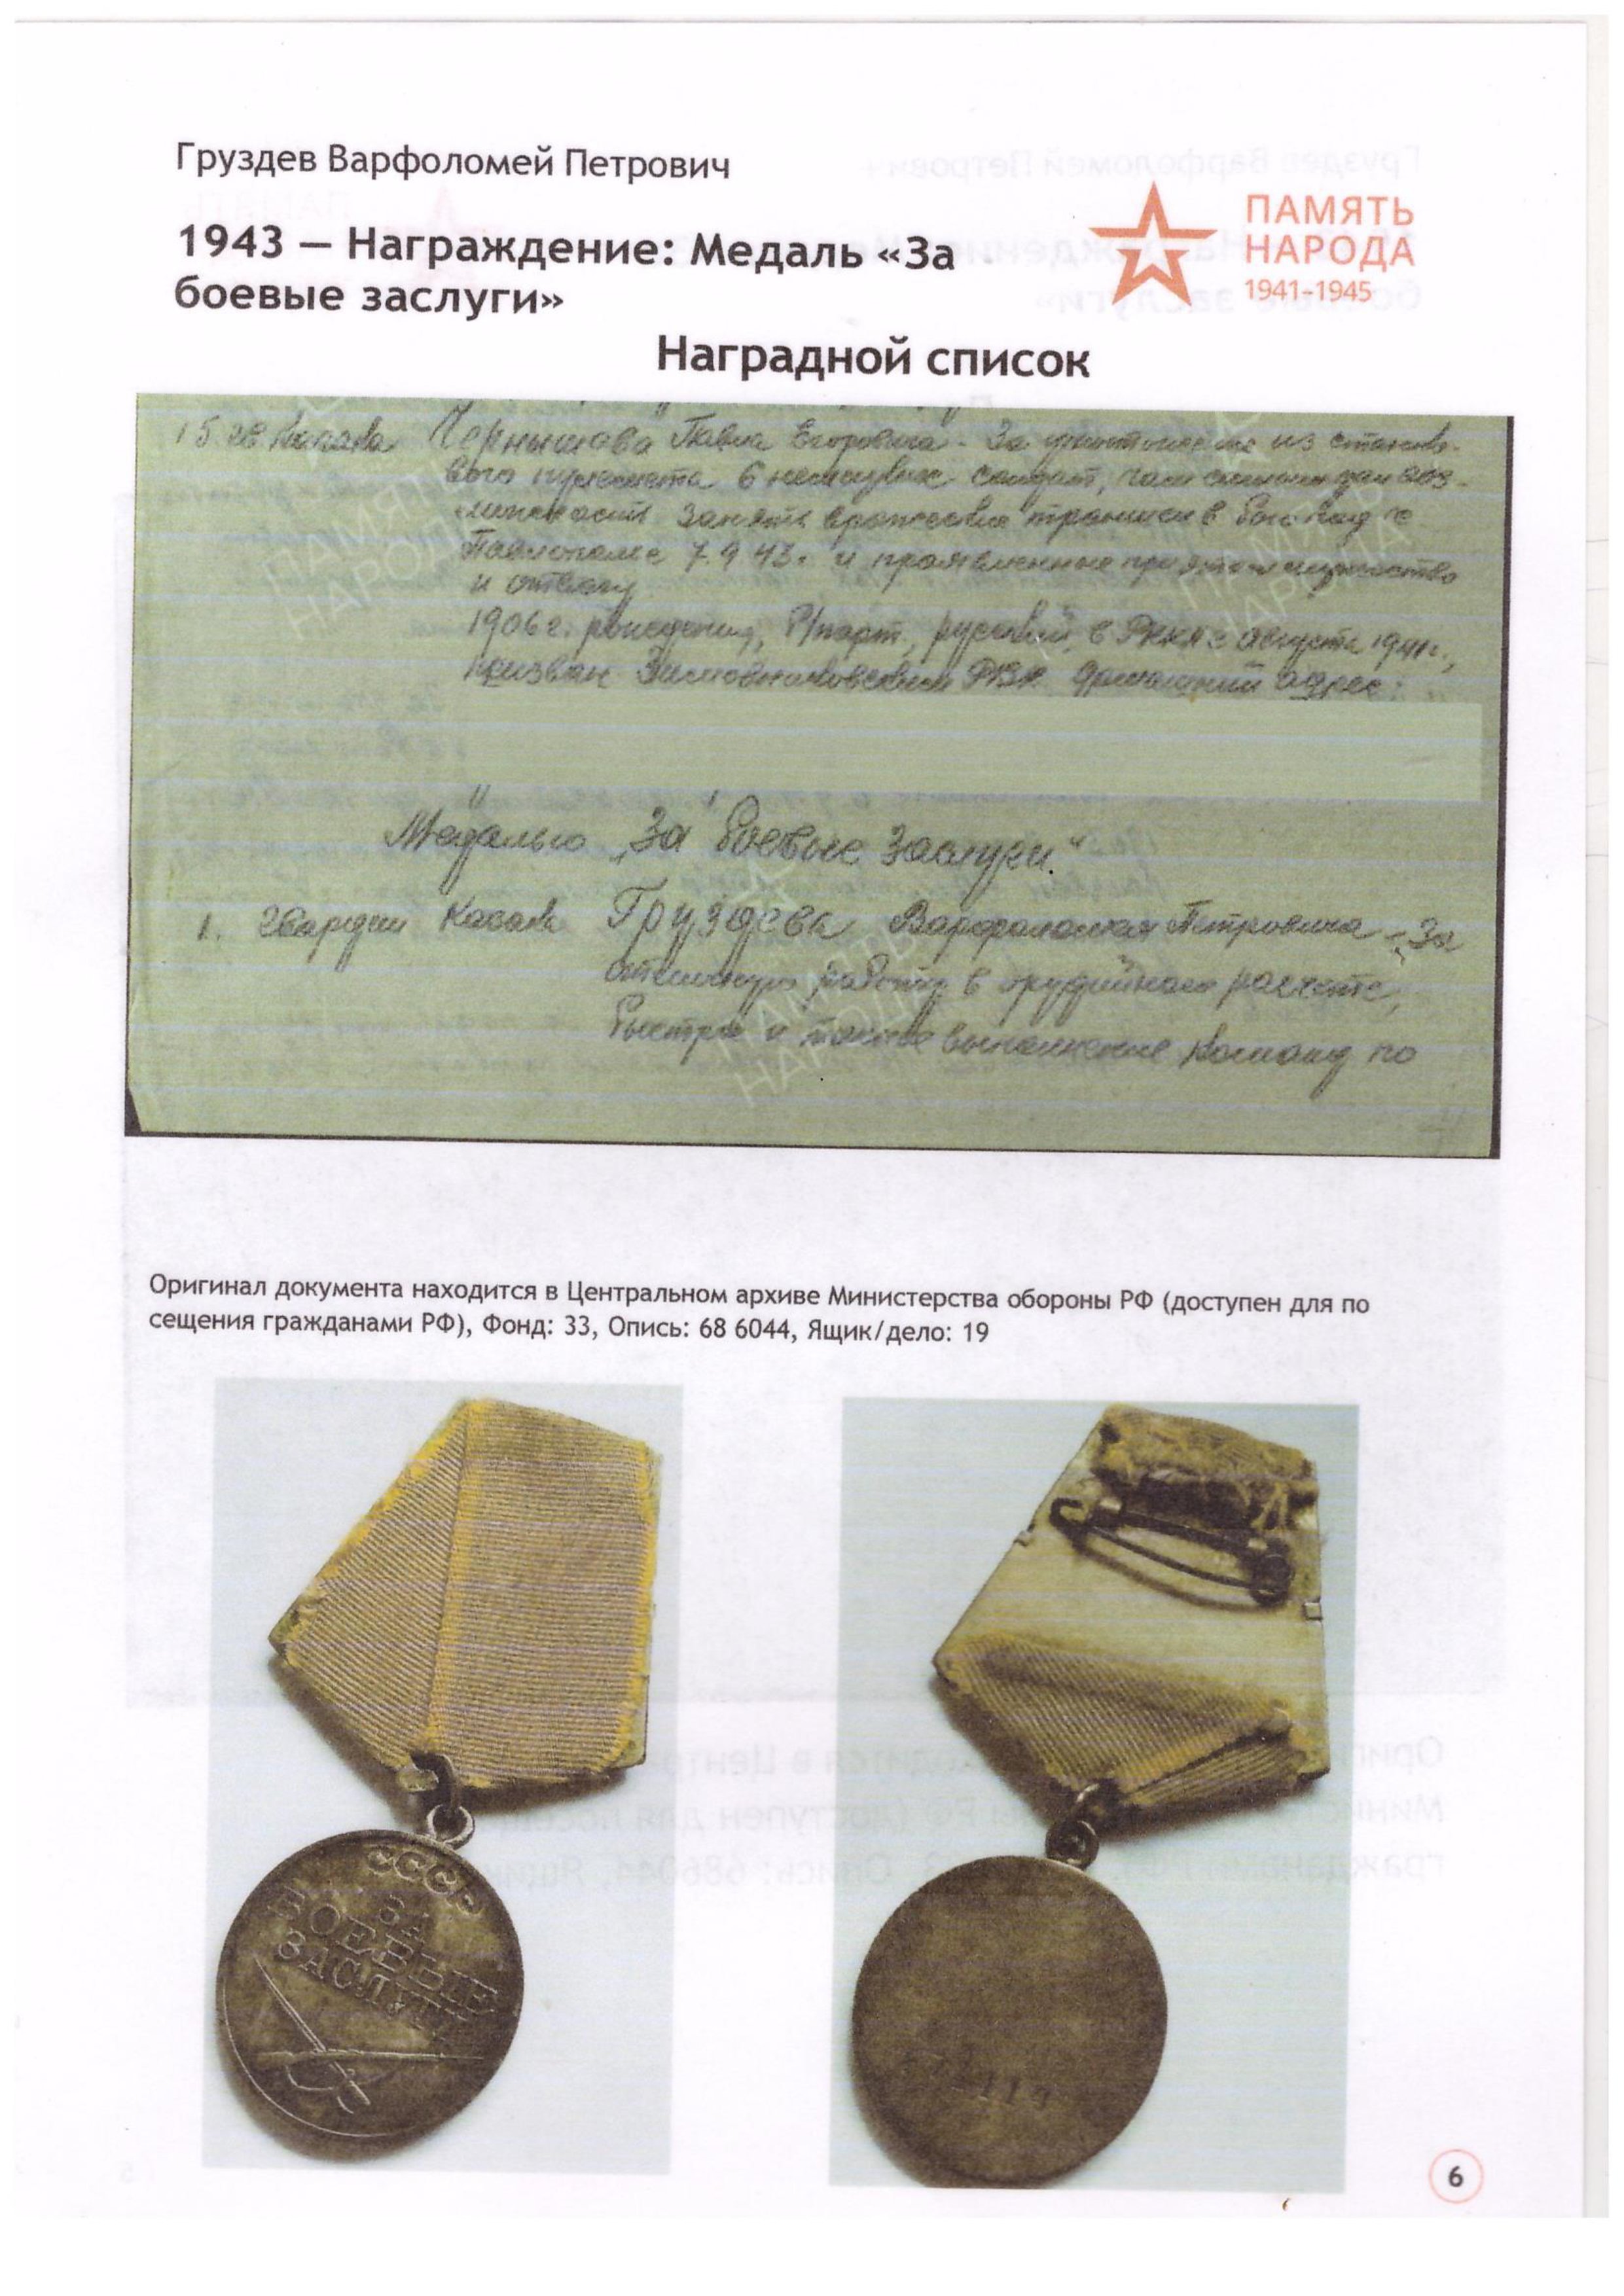 Груздев Варфоломей Петрович
1943 — Награждение: Медаль «За
боевые заслуги»
ПАМЯТЬ
НАРОДА
1941-1945
Наградной список
15. гв. Казака Чернышова Павла Егоровича - За уничтожение из станко-
вого пулемета 6 немецких солдат, чем самым дал воз-
можность занять вражеские траншеи в бою под с
Павлополье 7.9.43г. и проявленные при этом мужество
и отвагу
1906г. рождения, русский, в РККА с августа 1941г.,
призван Зимовниковским РВК домашний адрес:
Медалью „За боевые заслуги."
1. Гвардии Казака Груздева Варфоломея Петровича - За
отличную работу в орудийном расчете,
быстрое и точное выполнение команд по
Оригинал документа находится в Центральном архиве Министерства обороны РФ (доступен для по
сещения гражданами РФ), Фонд: 33, Опись: 68 6044, Ящик/дело: 19
СССР
ЗА
БОЕВЫЕ
ЗАСЛУГИ
6